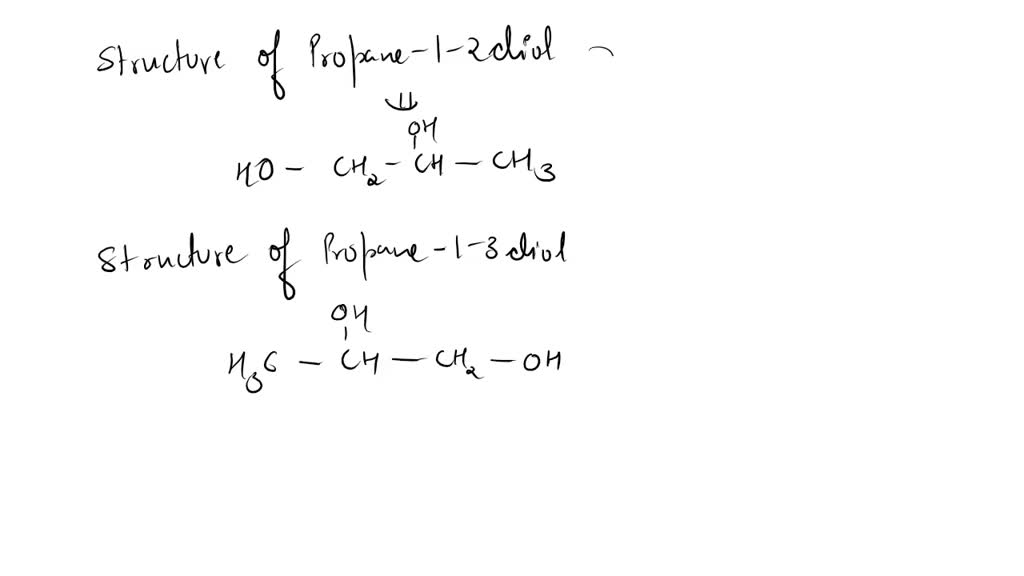 Structure of Propane-1-2diol
OH
HO - CH2 - CH - CH3
Structure of Propane-1-3diol
OH
H3C - CH - CH2 - OH